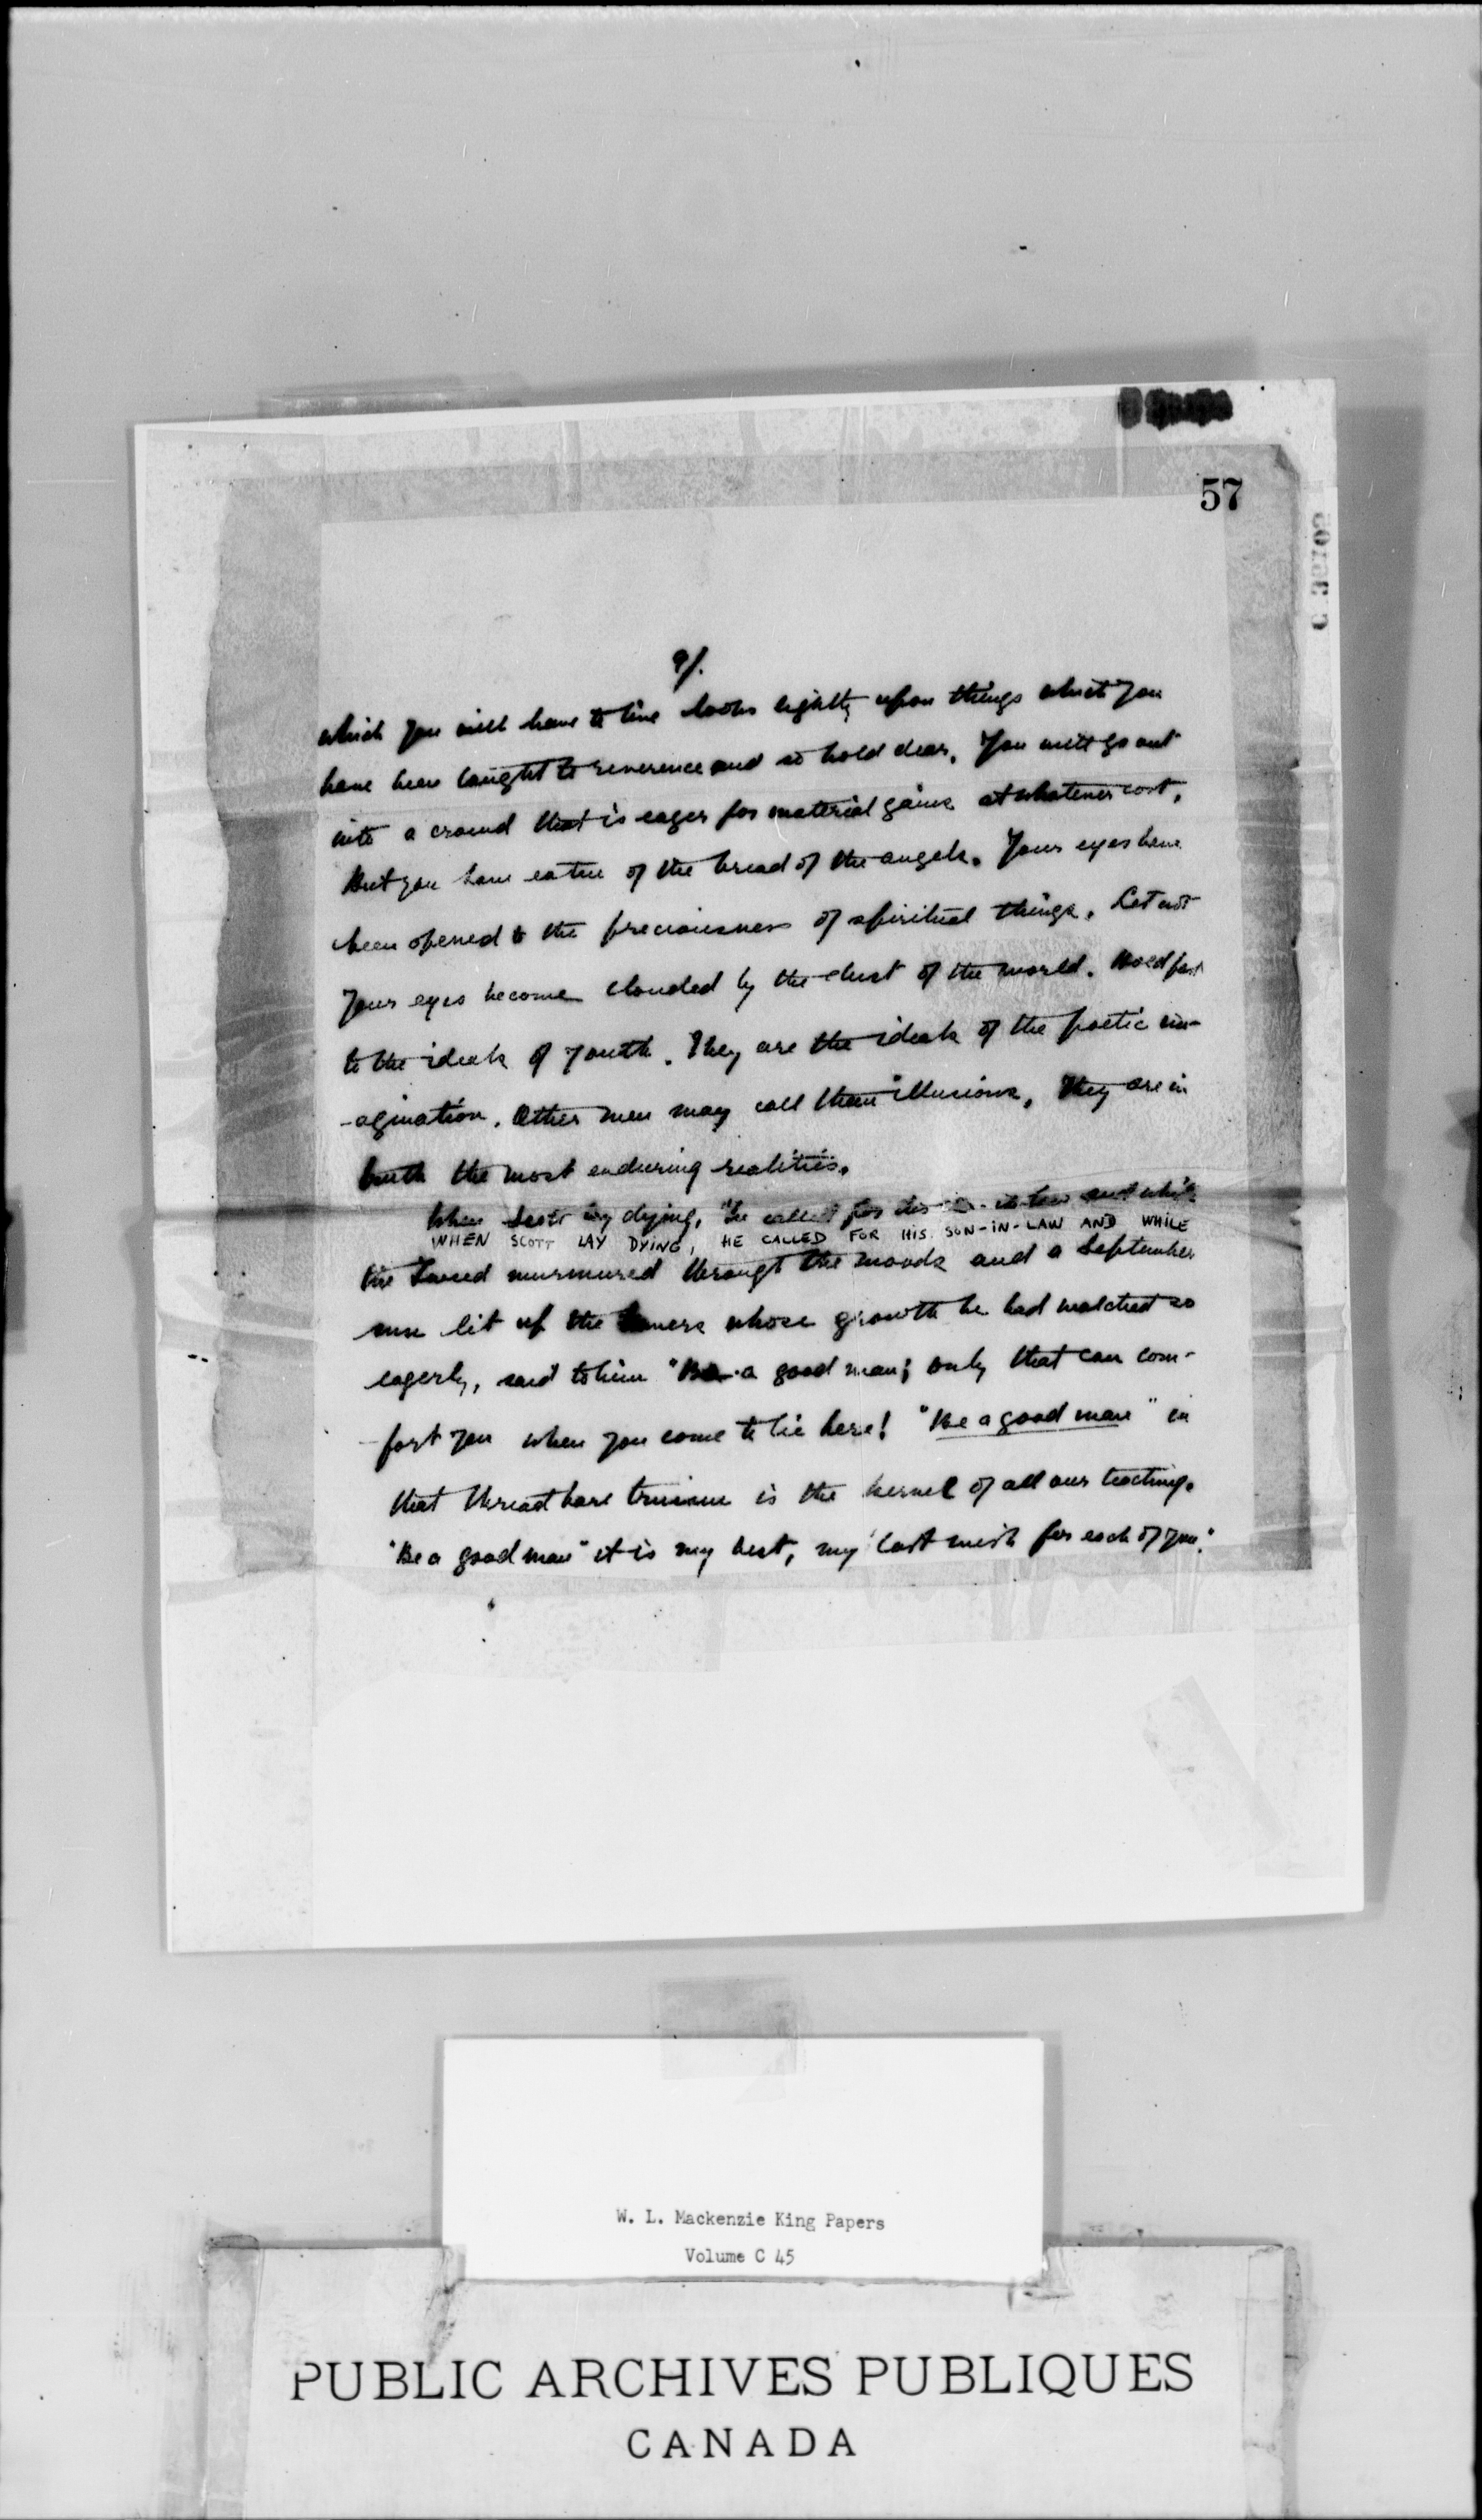 57
9/.
which you will have to live looks lightly upon things which you
have been taught to reverence and to hold dear. You will go out
into a crowd that is eager for material gains at whatever cost.
But you have eaten of the bread of the angels. Your eyes have
been opened to the preciousness of spiritual things. Let not
your eyes become clouded by the dust of the world. Hold fast
to the ideals of youth. They are the ideals of the poetic im-
-agination. Other men may call them illusions, they are in
truth the most enduring realities.
When Scott lay dying, he called for his son-in-law and while
WHEN SCOTT LAY DYING, HE CALLED FOR HIS SON-IN-LAW AND WHILE
the Tweed murmured through the woods and a September
sun lit up the towers whose growth he had watched so
eagerly, said to him "Be a good man; only that can com-
fort you when you come to lie here! "Be a good man" in
that threadbare truism is the kernel of all our teaching.
"Be a good man" it is my best, my last wish for each of you."
W. L. Mackenzie King Papers
Volume C 45
PUBLIC ARCHIVES PUBLIQUES
CANADA